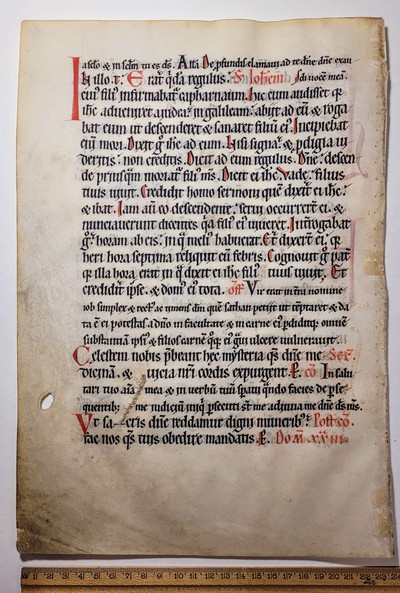 in seculum tu es ds. Alla De pfundis clamaui ad te dne dne exau
In illo t. Erat qda regulus: S. Iohem di uoce mea.
cui' fili' infirmabat capharnaum. hic cum audisset q
ihc adueniret a iudea in galileam: abiit ad eu & roga
bat eum ut descenderet & sanaret filiu ei'. Incipiebat
eni mori. Dixit g ihc ad eum. Nisi signa & pdigia ui
deritis: non creditis. Dicit ad eum regulus. Dne: descen
de priusqm moriat fili' m's. Dicit ei ihc. Vade: filius
tuus uiuit. Credidit homo sermoni que dixit ei ihc:
& ibat. Iam au eo descendente: serui occurrert ei. &
nunciauerunt dicentes qa fili' ei' uiueret. Introgabat
g horam ab eis: in q meli' habuerat. Et dixert ei. q
heri hora septima reliquit eu febris. Cognouit g pat
q illa hora erat in q dixit ei ihc fili' tuus uiuit. Et
credidit ipse. & dom' ei' tota. Off. Vir erat in tra nomine
iob simplex & rect' ac timens dm que sathan petiit ut teptaret & da
ta e ei potestas a dno in facultate & in carne ei' pdiditq omne
substantia ipsi' & filios carne qq ei' gui ulcere uulnerauit.
Celestem nobis pbeant hec mysteria qs dne me Sec.
dicina. & uicia nri cordis expurgent. P. co In salu
tari tuo aia mea & in uerbu tuu spaui qndo facies de pse
quentib: me iudiciu iniq psecuti st me adiuua me dne ds ms.
Vt sacris dne reddamur digni munerib: Post co.
fac nos qs tuis obedire mandatis. P. Dom xxii
1 2 3 4 5 6 7 8 9 10 11 12 13 14 15 16 17 18 19 20 21 22 23 24